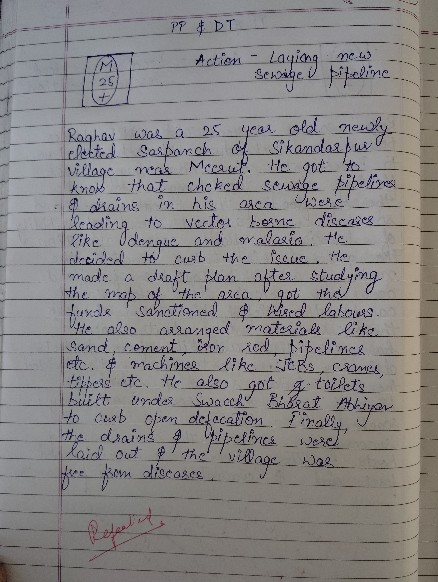 PP & DT
M
25
+
Action - Laying new
sewage pipeline
Raghav was a 25 year old newly
elected Sarpanch of Sikandarpur
village near Meerut. He got to
know that choked sewage pipelines
& drains in his area were
leading to vector borne diseases
like dengue and malaria. He
decided to curb the issue. He
made a draft plan after studying
the map of the area, got the
funds sanctioned & hired labours.
He also arranged materials like
sand, cement, iron rod, pipelines
etc. & machines like JCBs, cranes,
tippers etc. He also got toilets
built under Swacch Bharat Abhiyan
to curb open defecation. Finally,
the drains & pipelines were
laid out & the village was
free from diseases.
Repeated